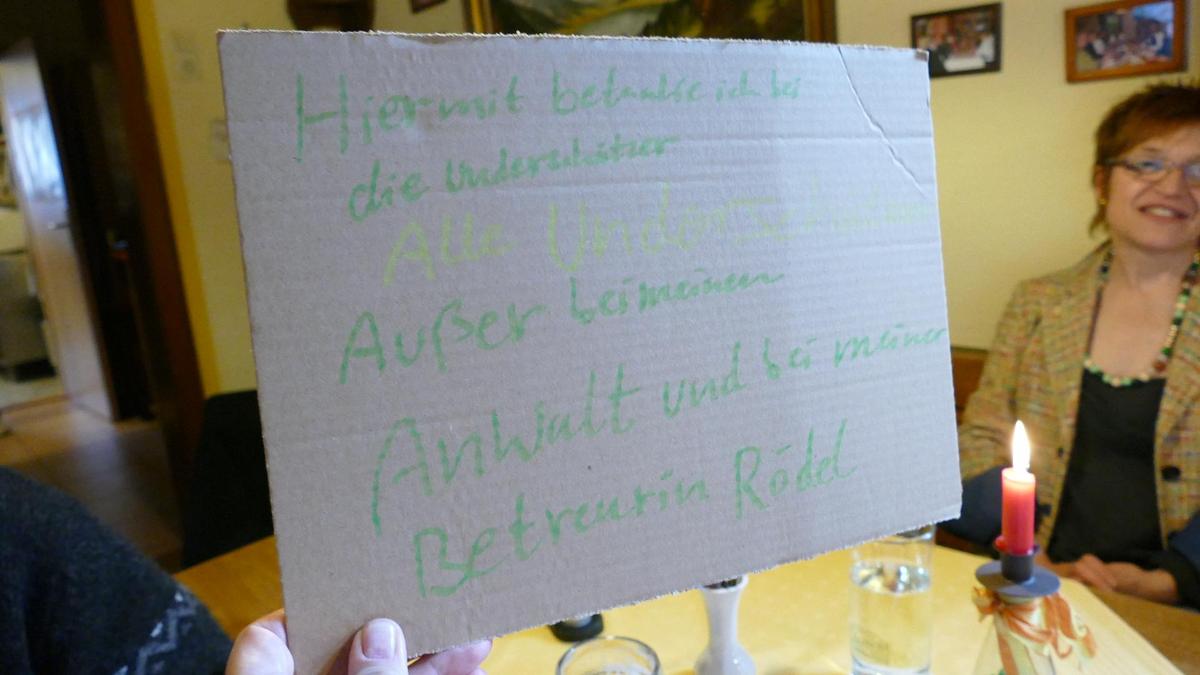 Hiermit betanke ich bei
die Underschätzer
Alle Underschätzer
Außer bei meinen
Anwalt und bei meiner
Betreurin Rödel